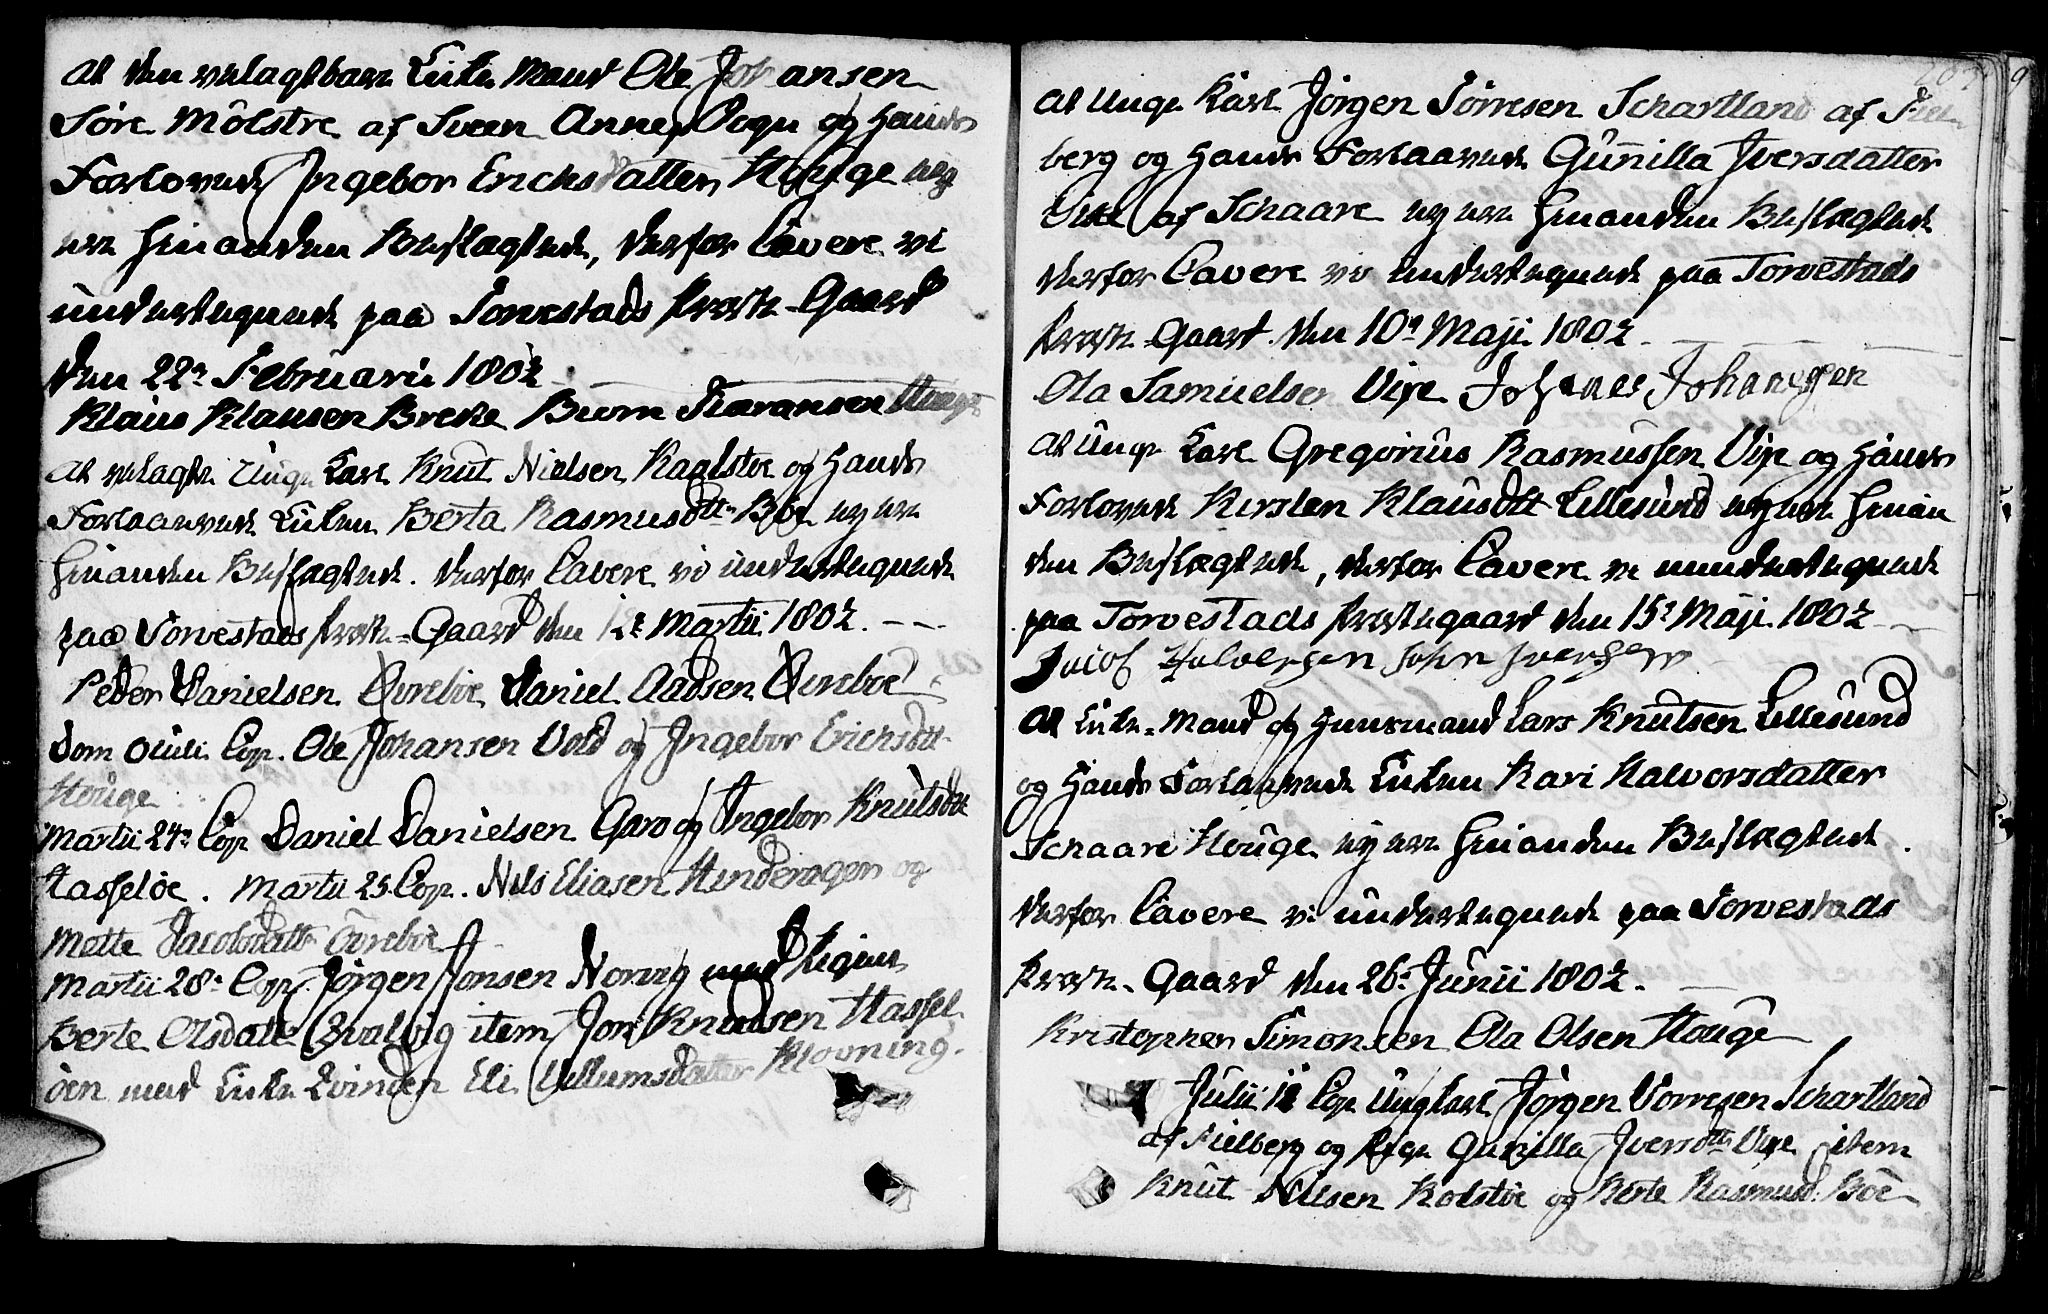 At den velagtbare Enke Mand Ole Johansen
Söre Mölstre af Sveen Annex Sogn og Hands
Forlovede Ingebor Erichsdatter Houge ey
ere hinanden Beslægtede, derfor Cavere vi
undertegnede paa Torvestads Præste-Gaard
den 22de Februarii 1802
Klaus Klausen Breke Biørn
At velagte Unge Karl Knut Nielsen Kaalstöe og Hands
Forlaavede Enken Berta Rasmusdttr Böe ey ere
hinanden Beslægtede. derfor Cavere vi undertegnede
paa Torvestads Præste-Gaard den Martii 1802.
Peder Danielsen Øvreböe Daniel Aadsen Øvreböe
Dom Oculi Cop. Ole Johansen Vold og Ingebor Erichsdtt
Houge
Martii 24de Cop Daniel Danielsen Garo og Ingebor Knutsdtt
Hasselöe. Martii 25 Cop. Nils Eliasen og
Mette Jacobsdatt Övreböe
Martii 28de Cop. Jörgen Jonsen Norvig med Pigen
Berte Olsdatt Qvalvig item Jon Knudsen Hassel
öen med Enke Qvinden Eli Villumsdatter Klovning.
At Unge Karl Jörgen Törresen Schartland af Fiel
berg og Hands Forlaavede Gunilla Iversdatter
Vixe af Schaare ey ere hinanden Beslægtede
derfor Cavere vi undertegnede paa Torvestads
Præste-Gaard den 10de Maji 1802
Ola Samuelsen Vixe Johanes Johanesen
At Unge Karl Gregorius Rasmussen Vixe og Hands
Forlovede Kirsten Klausdtt Lillesund ey ere hinan
den Beslægtede, derfor Cavere vi undertegnede
paa Torvestads Præstegaard den 15de Maji 1802
Jacob Halversen John Iversen
At Enke-Mand og Huusmand Lars Knutsen Lillesund
og Hands Forlaavede Enken Kari Halvorsdatter
Schaare Houge ey ere hinanden Beslægtede.
derfor Cavere vi undertegnede paa Torvestads
Præste-Gaard den 26de Junii 1802.
Kristopher Simonsen Ola Olsen Houge
Julii Cop Ungkarl Jörgen Torresen Schartland
af Fielberg og Pige Gunilla Iversdttr Vixe item
Knut Nilsen Kolstöe og Berte Rasmusd. Böe